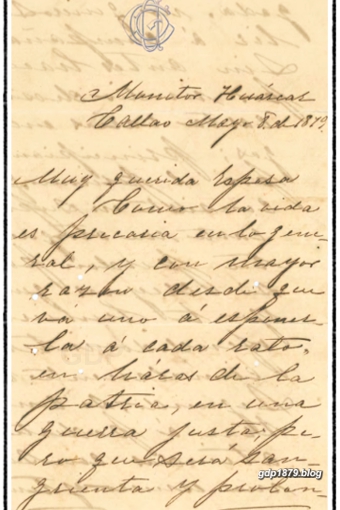 Monitor Huáscar
Callao Mayo 8 de 1879.
Muy querida Esposa
Como la vida
es precaria en lo gene-
ral, y con mayor
razon desde que
va uno á esponer-
la á cada rato,
en háras de la
patria, en una
guerra justa, pe-
ro que será san-
grienta y prolon-
gdp1879.blog